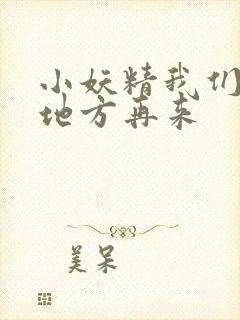 小妖精我们
地方再来
美呆